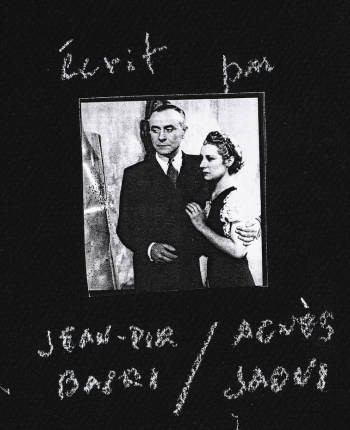 écrit par
JEAN-PIR / AGNÈS
BASRI / JAOUI